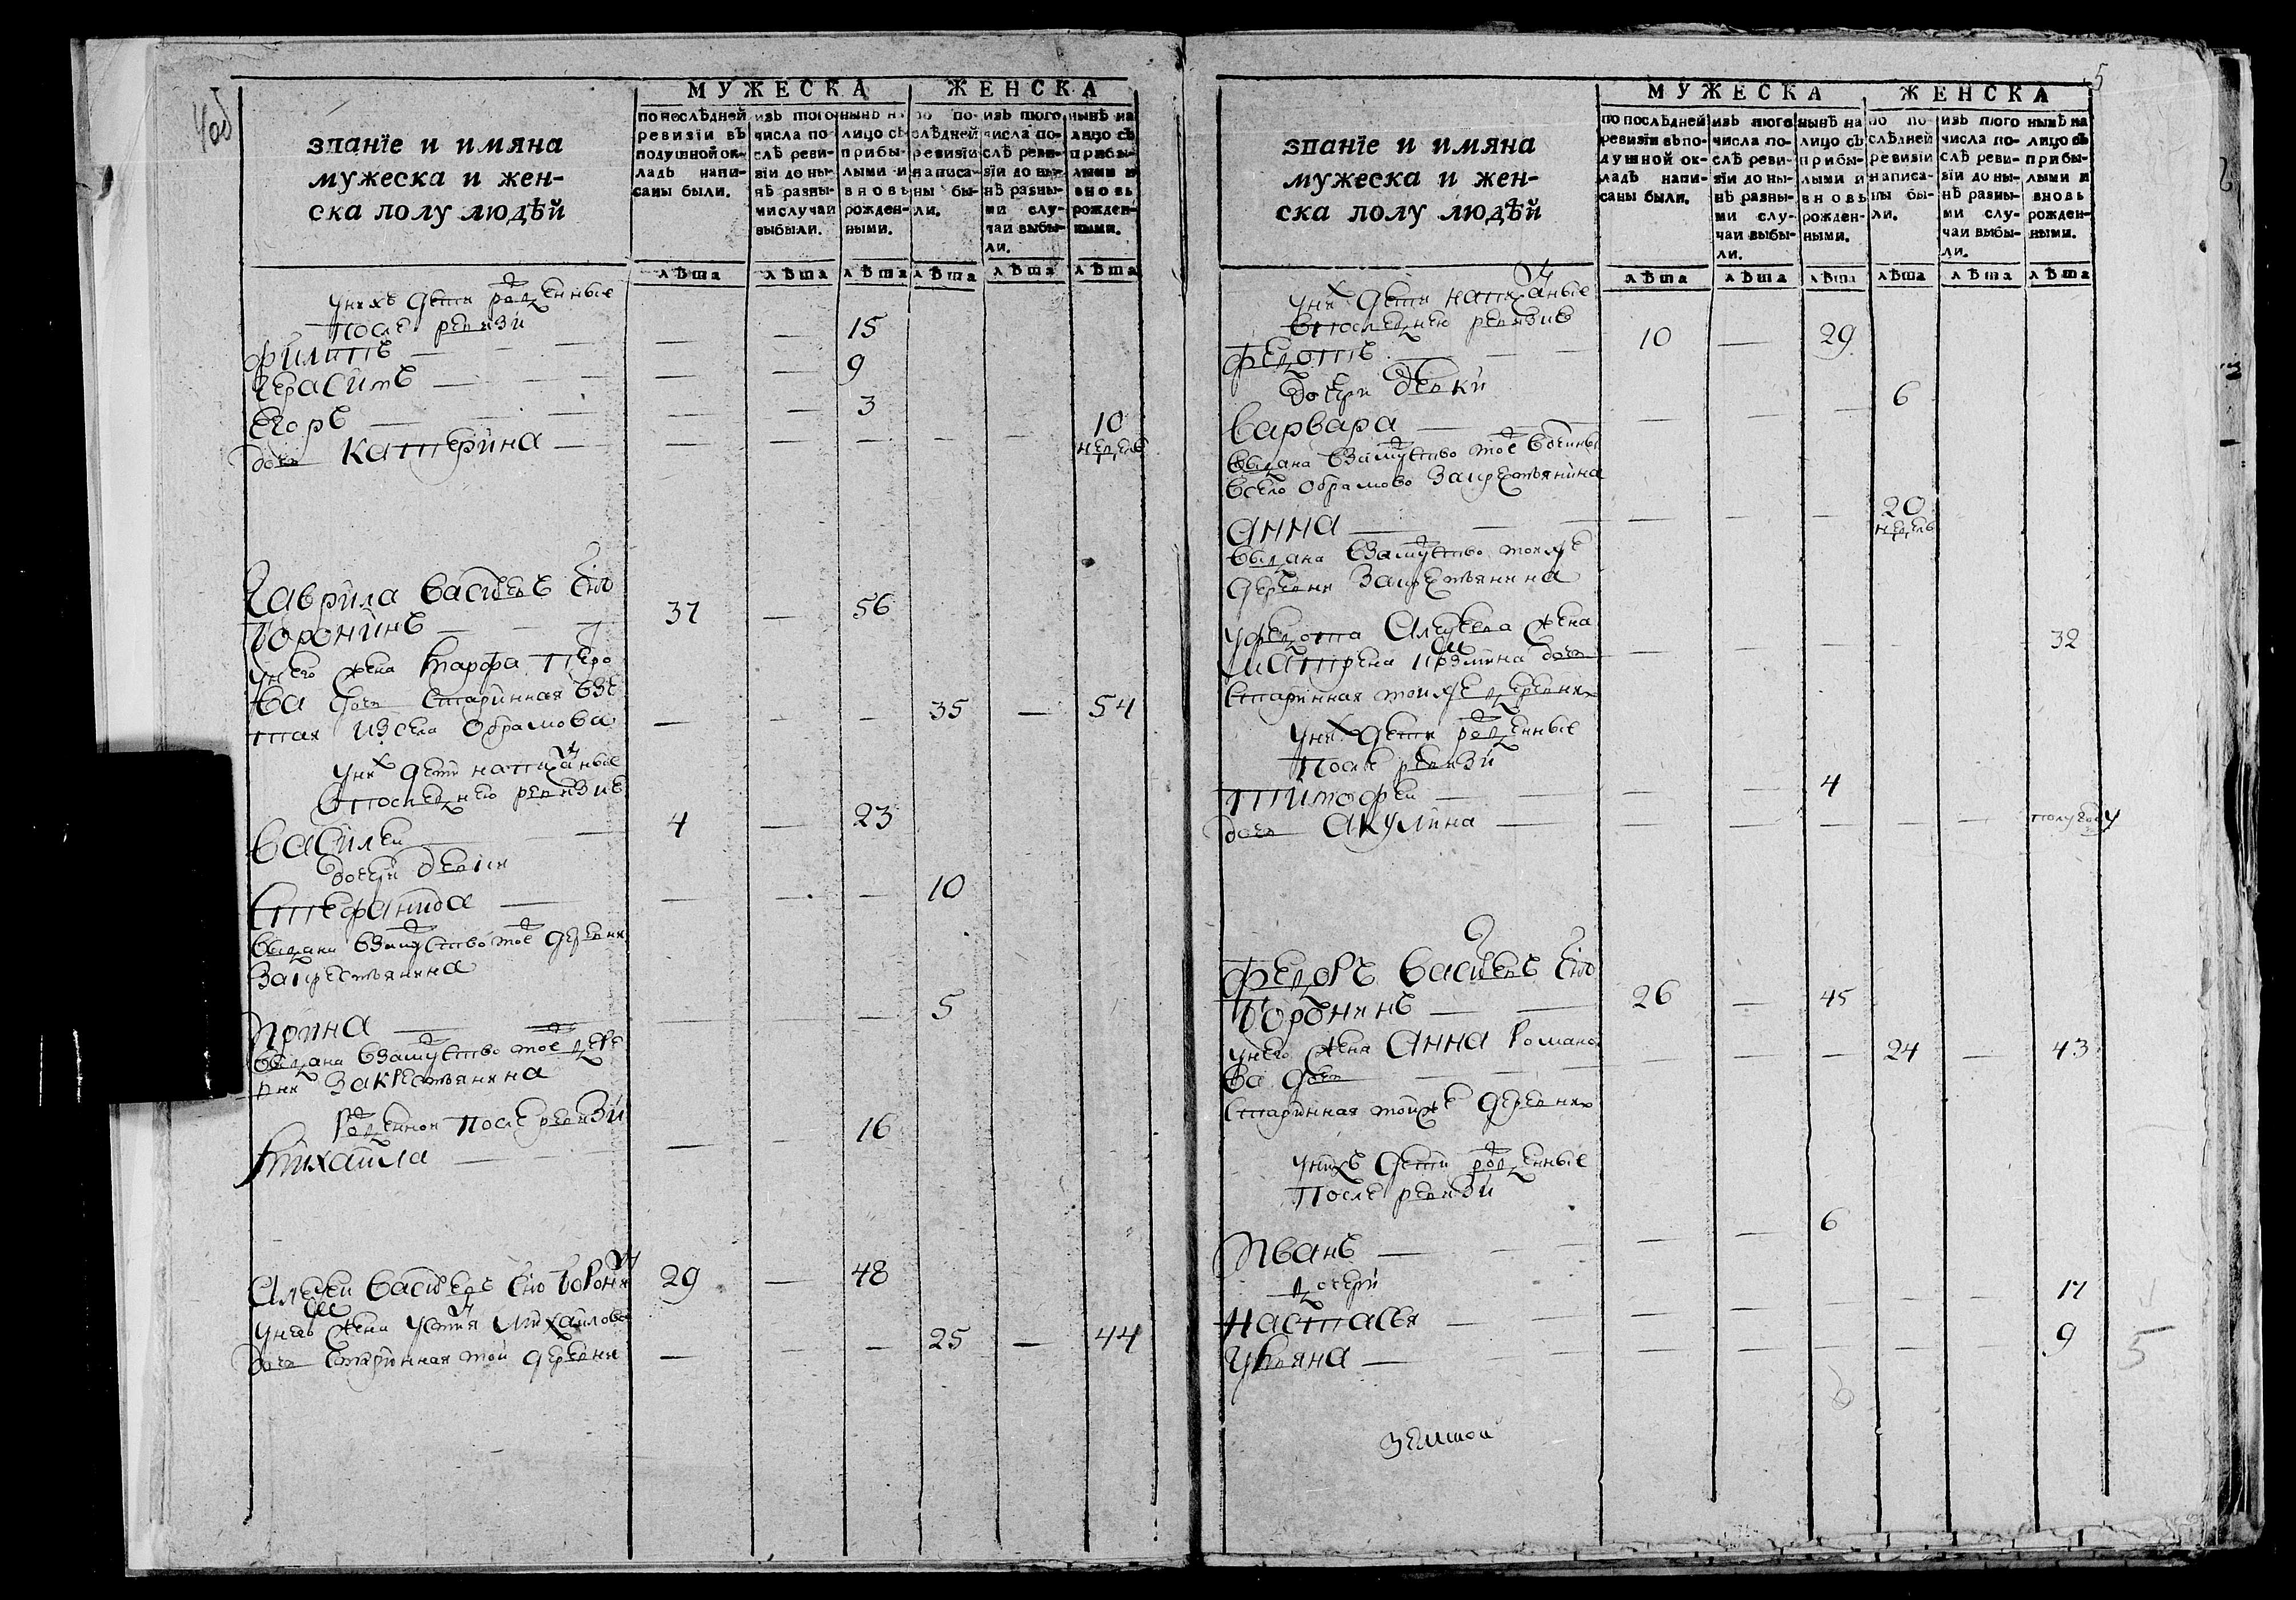 4об
МУЖЕСКА ЖЕНСКА
званїе и имяна
мужеска и жен-
ска полу людѣй
по последней
ревизїи въ
подушной ок-
ладѣ напи-
саны были.
изъ того
числа по-
слѣ реви-
зїи до ны-
нѣ разны-
ми случаи
выбыли.
нынѣ на
лицо съ
прибы-
лыми и
вновь
рожден-
ными.
по по-
слѣдней
ревизїи
написа-
ны бы-
ли.
изъ того
числа по-
слѣ реви-
зїи до ны-
нѣ разны-
ми слу-
чаи выбы-
ли.
нынѣ на
лицо съ
прибы-
лыми и
вновь
рожден-
ными.
лѣта лѣта лѣта лѣта лѣта лѣта
у них дети рожденные
после ревизи
филипъ — — — — — 15
герасимъ — — — — 9
егоръ — — — — 3
дочь катерина — — — — — — 10
недель
гаврила васильевъ снъ
воронинъ — — — 37 — 56
у него жена марфа петро
ва дочь старинная взе
тая из села обрамова — — — 35 — 54
у них дети написаные
в последнею ревизие
василеи — — 4 — 23
дочери девки
степанида — — — — 10
выдана взамужство тое деревни
за крестьянина
ирина — — — — 5
выдана взамужство тое дере
вни за крестьянина
рожденной после ревизи
михаила — — — — 16
алексеи васильевъ снъ воронин 29 — 48
у него жена устинья михаилова
дочь старинная тои деревни — — — 25 — 44
5
МУЖЕСКА ЖЕНСКА
званїе и имяна
мужеска и жен-
ска полу людѣй
по послѣдней
ревизїи въ по-
душной ок-
ладѣ напи-
саны были.
изъ того
числа по-
слѣ реви-
зїи до ны-
нѣ разны-
ми слу-
чаи выбы-
ли.
нынѣ на
лицо съ
прибы-
лыми и
вновь
рожден-
ными.
по по-
слѣдней
ревизїи
написа-
ны бы-
ли.
изъ того
числа по-
слѣ реви-
зїи до ны-
нѣ разны-
ми слу-
чаи выбы-
ли.
нынѣ на
лицо съ
прибы-
лыми и
вновь
рожден-
ными.
лѣта лѣта лѣта лѣта лѣта лѣта
у них дети написаные
в последнею ревизие
федотъ — — — 10 — 29
дочери девки
варвара — — — — — 6
выдана взамужство тое вотчины
в село обрамово за крестьянина
анна — — — — — — 20
недель
выдана взамужство тои же
деревни за крестьянина
у федота алексеева жена
матрена дочь — — — — — 32
старинная тои же деревни
у них дети рожденные
после ревизи
тимофеи — — — — 4
дочь акулина — — — — — — полугоду
федоръ васильевъ снъ
воронинъ — — 26 — 45
у него жена анна романо
ва дочь — — — — — 24 — 43
старинная тои же деревни
у нихъ дети рожденные
после ревизи
иванъ — — — — — 6
дочери
настасья — — — — — — — 17
ульяна — — — — — — — — 9
5